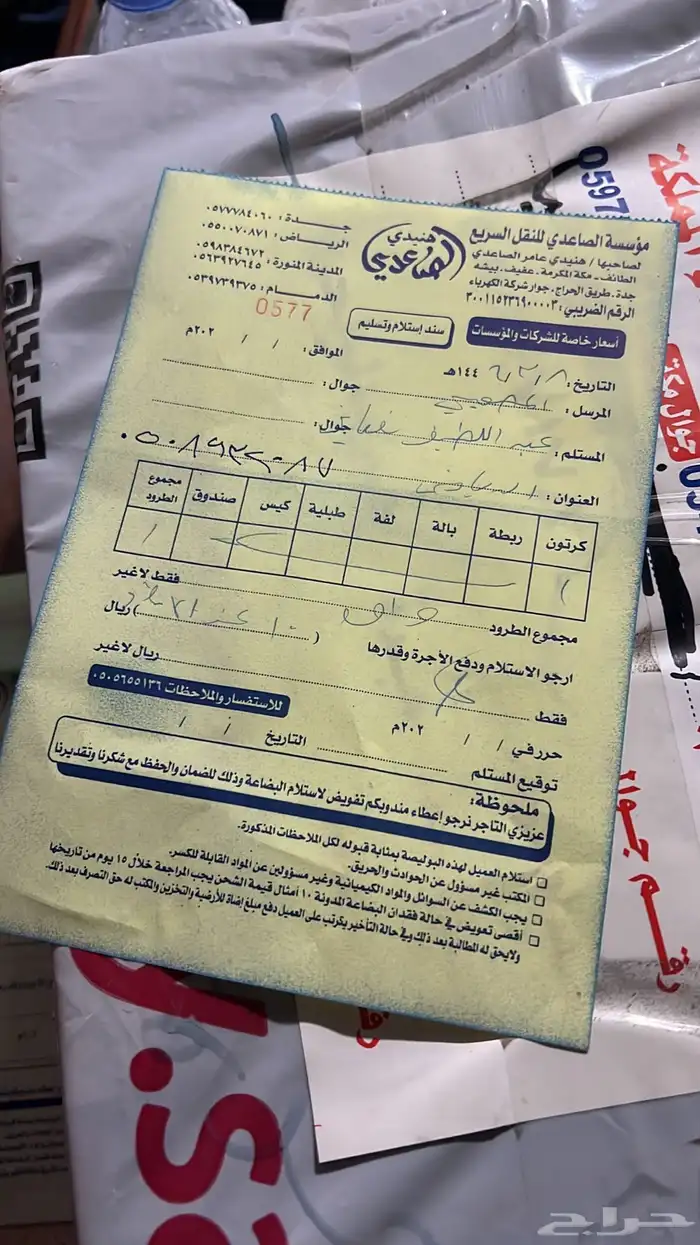 مؤسسة الصاعدي للنقل السريع
لصاحبها / هنيدي عامر الصاعدي
الطائف - مكة المكرمة - عفيف - بيشه
جدة - طريق الحراج - جوار شركة الكهرباء
الرقم الضريبي: ٣٠٠١١٥٢٣٦٩٠٠٠٠٣
هنيدي
الصاعدي
جــدة : ٠٥٧٧٧٨٤٠٦٠
الرياض : ٠٥٥٠٠٧٠٨٧١
المدينة المنورة : ٠٥٩٨٣٨٤٦٧٢
٠٥٦٣٩٢٧٦٤٥
الدمــام : ٠٥٣٩٧٣٩٣٧٥
0577
أسعار خاصة للشركات والمؤسسات
سند إستلام وتسليم
التاريخ : ٨ / ٢ / ١٤٤٦هـ
الموافق : / / ٢٠٢م
المرسل :
جوال :
المستلم : عبد اللطيف
جوال :
العنوان : الرياض
٠٥٠٨٩٢٢٠٨٧
كرتون ربطة بالة لفة طبلية كيس صندوق مجموع الطرود
١ ١
مجموع الطرود واحد فقط لاغير
ارجو الاستلام ودفع الأجرة وقدرها ( ) ريال
فقط ريال لاغير
حرر في / / ٢٠٢م
للاستفسار والملاحظات ٠٥٠٥٦٥٥١٣٦
توقيع المستلم التاريخ / /
ملحوظة :
عزيزي التاجر نرجو إعطاء مندوبكم تفويض لاستلام البضاعة وذلك للضمان والحفظ مع شكرنا وتقديرنا
استلام العميل لهذه البوليصة بمثابة قبوله لكل الملاحظات المذكورة.
المكتب غير مسؤول عن الحوادث والحريق.
يجب الكشف عن السوائل والمواد الكيميائية وغير مسؤولين عن المواد القابلة للكسر.
أقصى تعويض في حالة فقدان البضاعة المدونة ١٠ أمثال قيمة الشحن يجب المراجعة خلال ١٥ يوم من تاريخها
ولايحق له المطالبة بعد ذلك وفي حالة التأخير يكرتب على العميل دفع مبلغ إضافة للأرضية والتخزين والمكتب له حق التصرف بعد ذلك.
0597
المملكة
مكة
جوال
رقم جوال
حراج